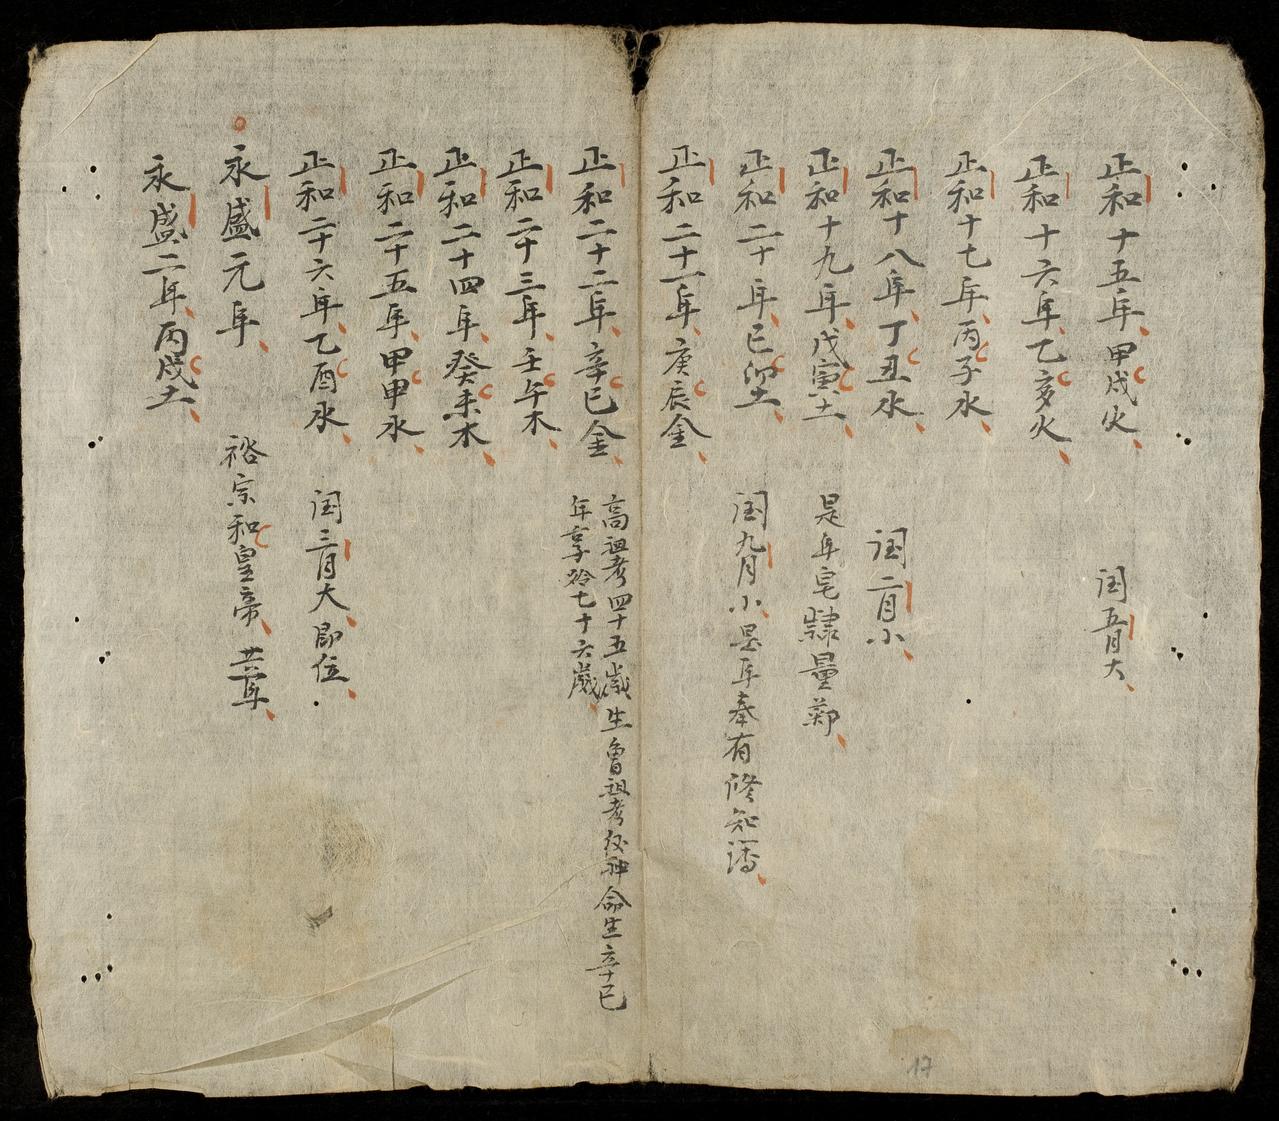 正和十五年甲戌火 閏五月大
正和十六年乙亥火
正和十七年丙子水
正和十八年丁丑水 閏二月小
正和十九年戊寅土 是年皂隸量鄚
正和二十年己卯土 閏九月小是年奉有修知
正和二十一年庚辰金
正和二十二年辛巳金 高祖考四十五歲生曾祖考 神命生辛巳
年享 七十六歲
正和二十三年壬午木
正和二十四年癸未木
正和二十五年甲申水
正和二十六年乙酉水 閏三月大即位
永盛元年 裕宗和皇帝
永盛二年丙戌土
17